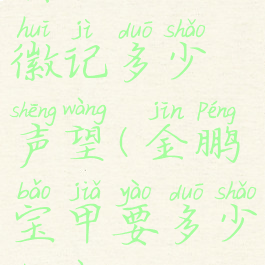 huī jì duō shǎo
徽记多少
shēng wàng jīn Péng
声望(金鹏
bǎo jiǎ yào duō shǎo
宝甲要多少